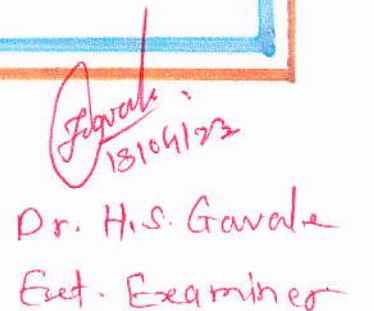 Gavale
18/04/23
Dr. H.S. Gavale
Ext. Examiner